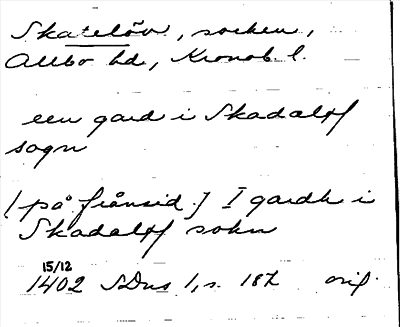 Skatelöv, socken,
Allbo hd, Kronob. l.
een gard i Skadaløf
sogn
[på frånsid.] I gardh i
Skadaløf sokn
15/12
1402 SDns 1, s. 187 orig.